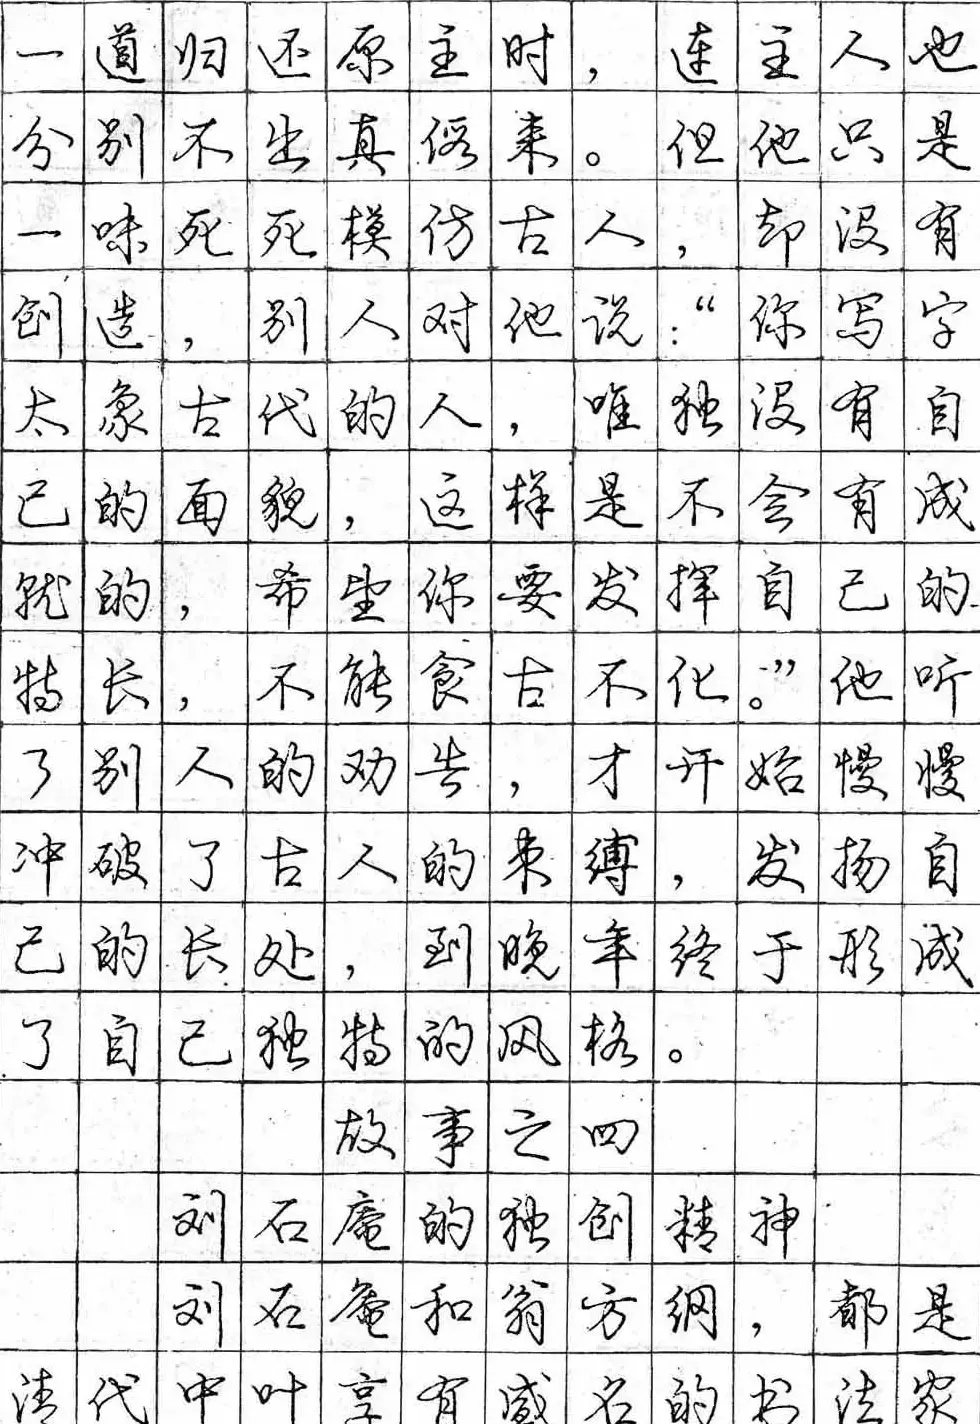 一道归还原主时，连主人也
分别不出真偽来。但他只是
一味死死模仿古人，却没有
创造，别人对他说：“你写字
太象古代的人，唯独没有自
己的面貌，这样是不会有成
就的，希望你要发挥自己的
特长，不能食古不化。”他听
了别人的劝告，才开始慢慢
冲破了古人的束缚，发扬自
己的长处，到晚年终于形成
了自己独特的风格。
故事之四
刘石庵的独创精神
刘石庵和翁方纲，都是
清代中叶享有盛名的书法家